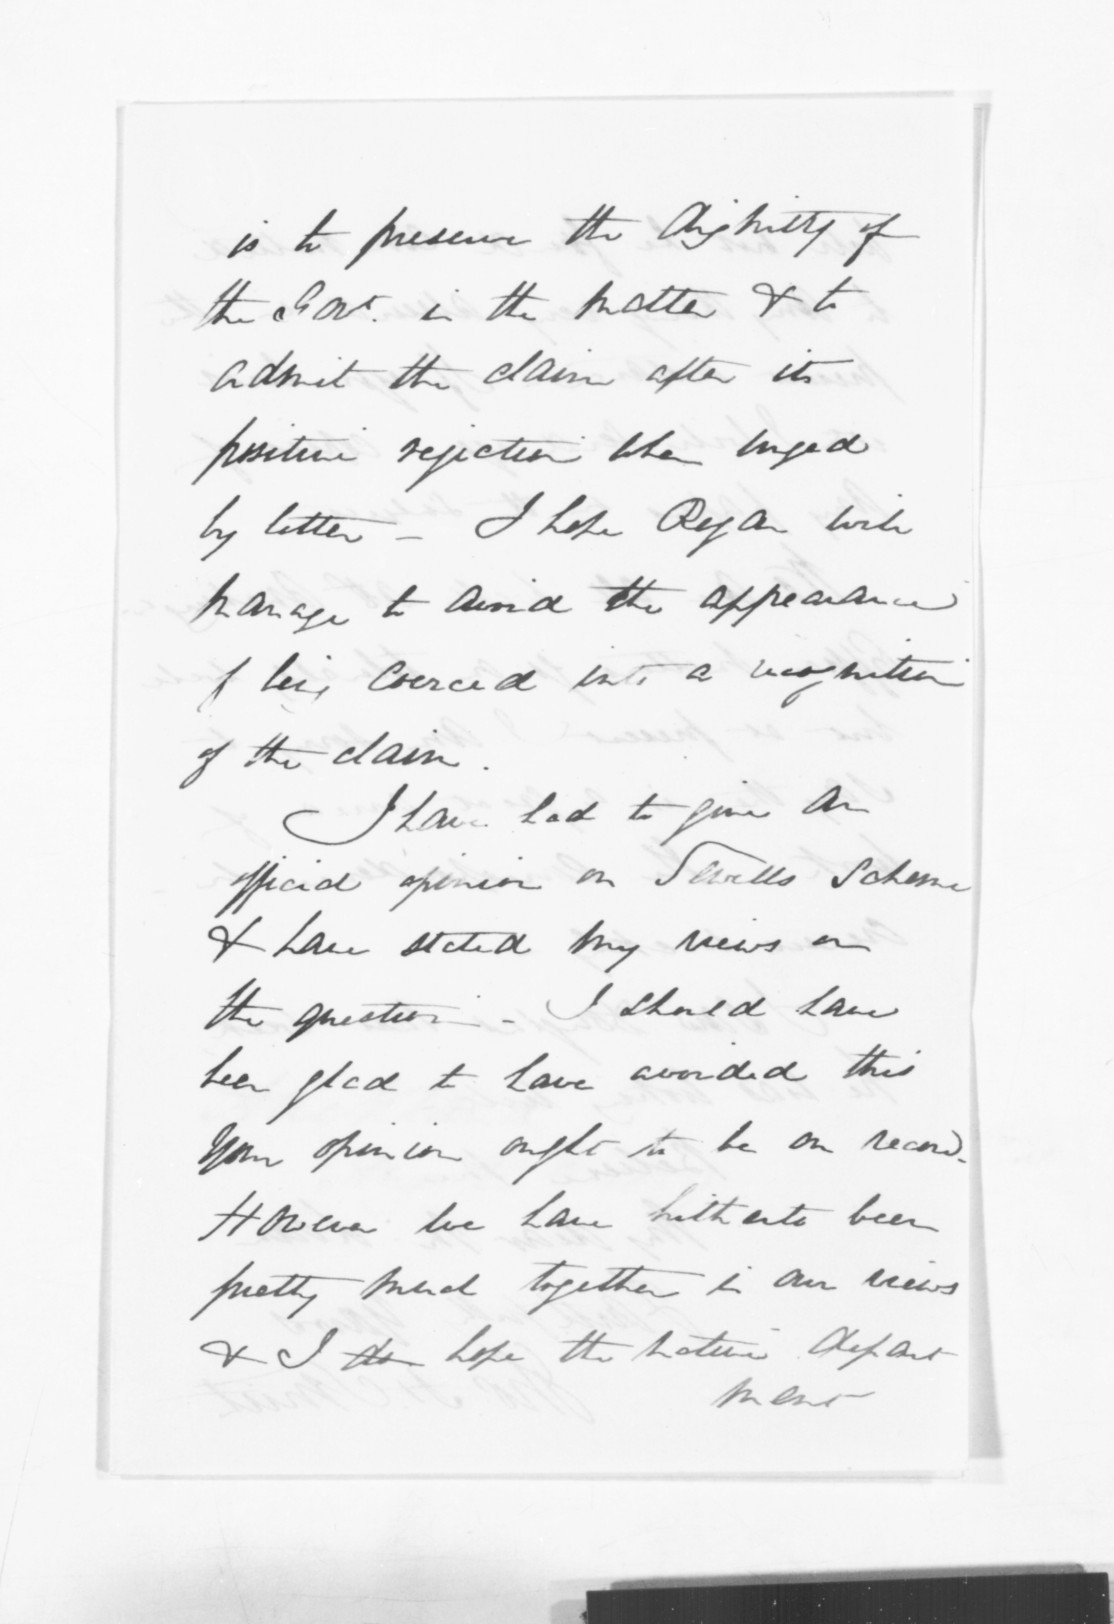 is to preserve the dignitty of
the Govt. in the matter & to
admit the claim after its
positive rejection when urged
by letter - I hope Rogan will
manage to avoid the appearance
of being coerced into a recognition
of the claim.
I have had to give an
official opinion on Sewells Scheme
& have stated my views on
the question - I should have
been glad to have avoided this
Your opinion ought to be on record.
However we have hitherto been
pretty much together in our views
& I do hope the native depart
ment